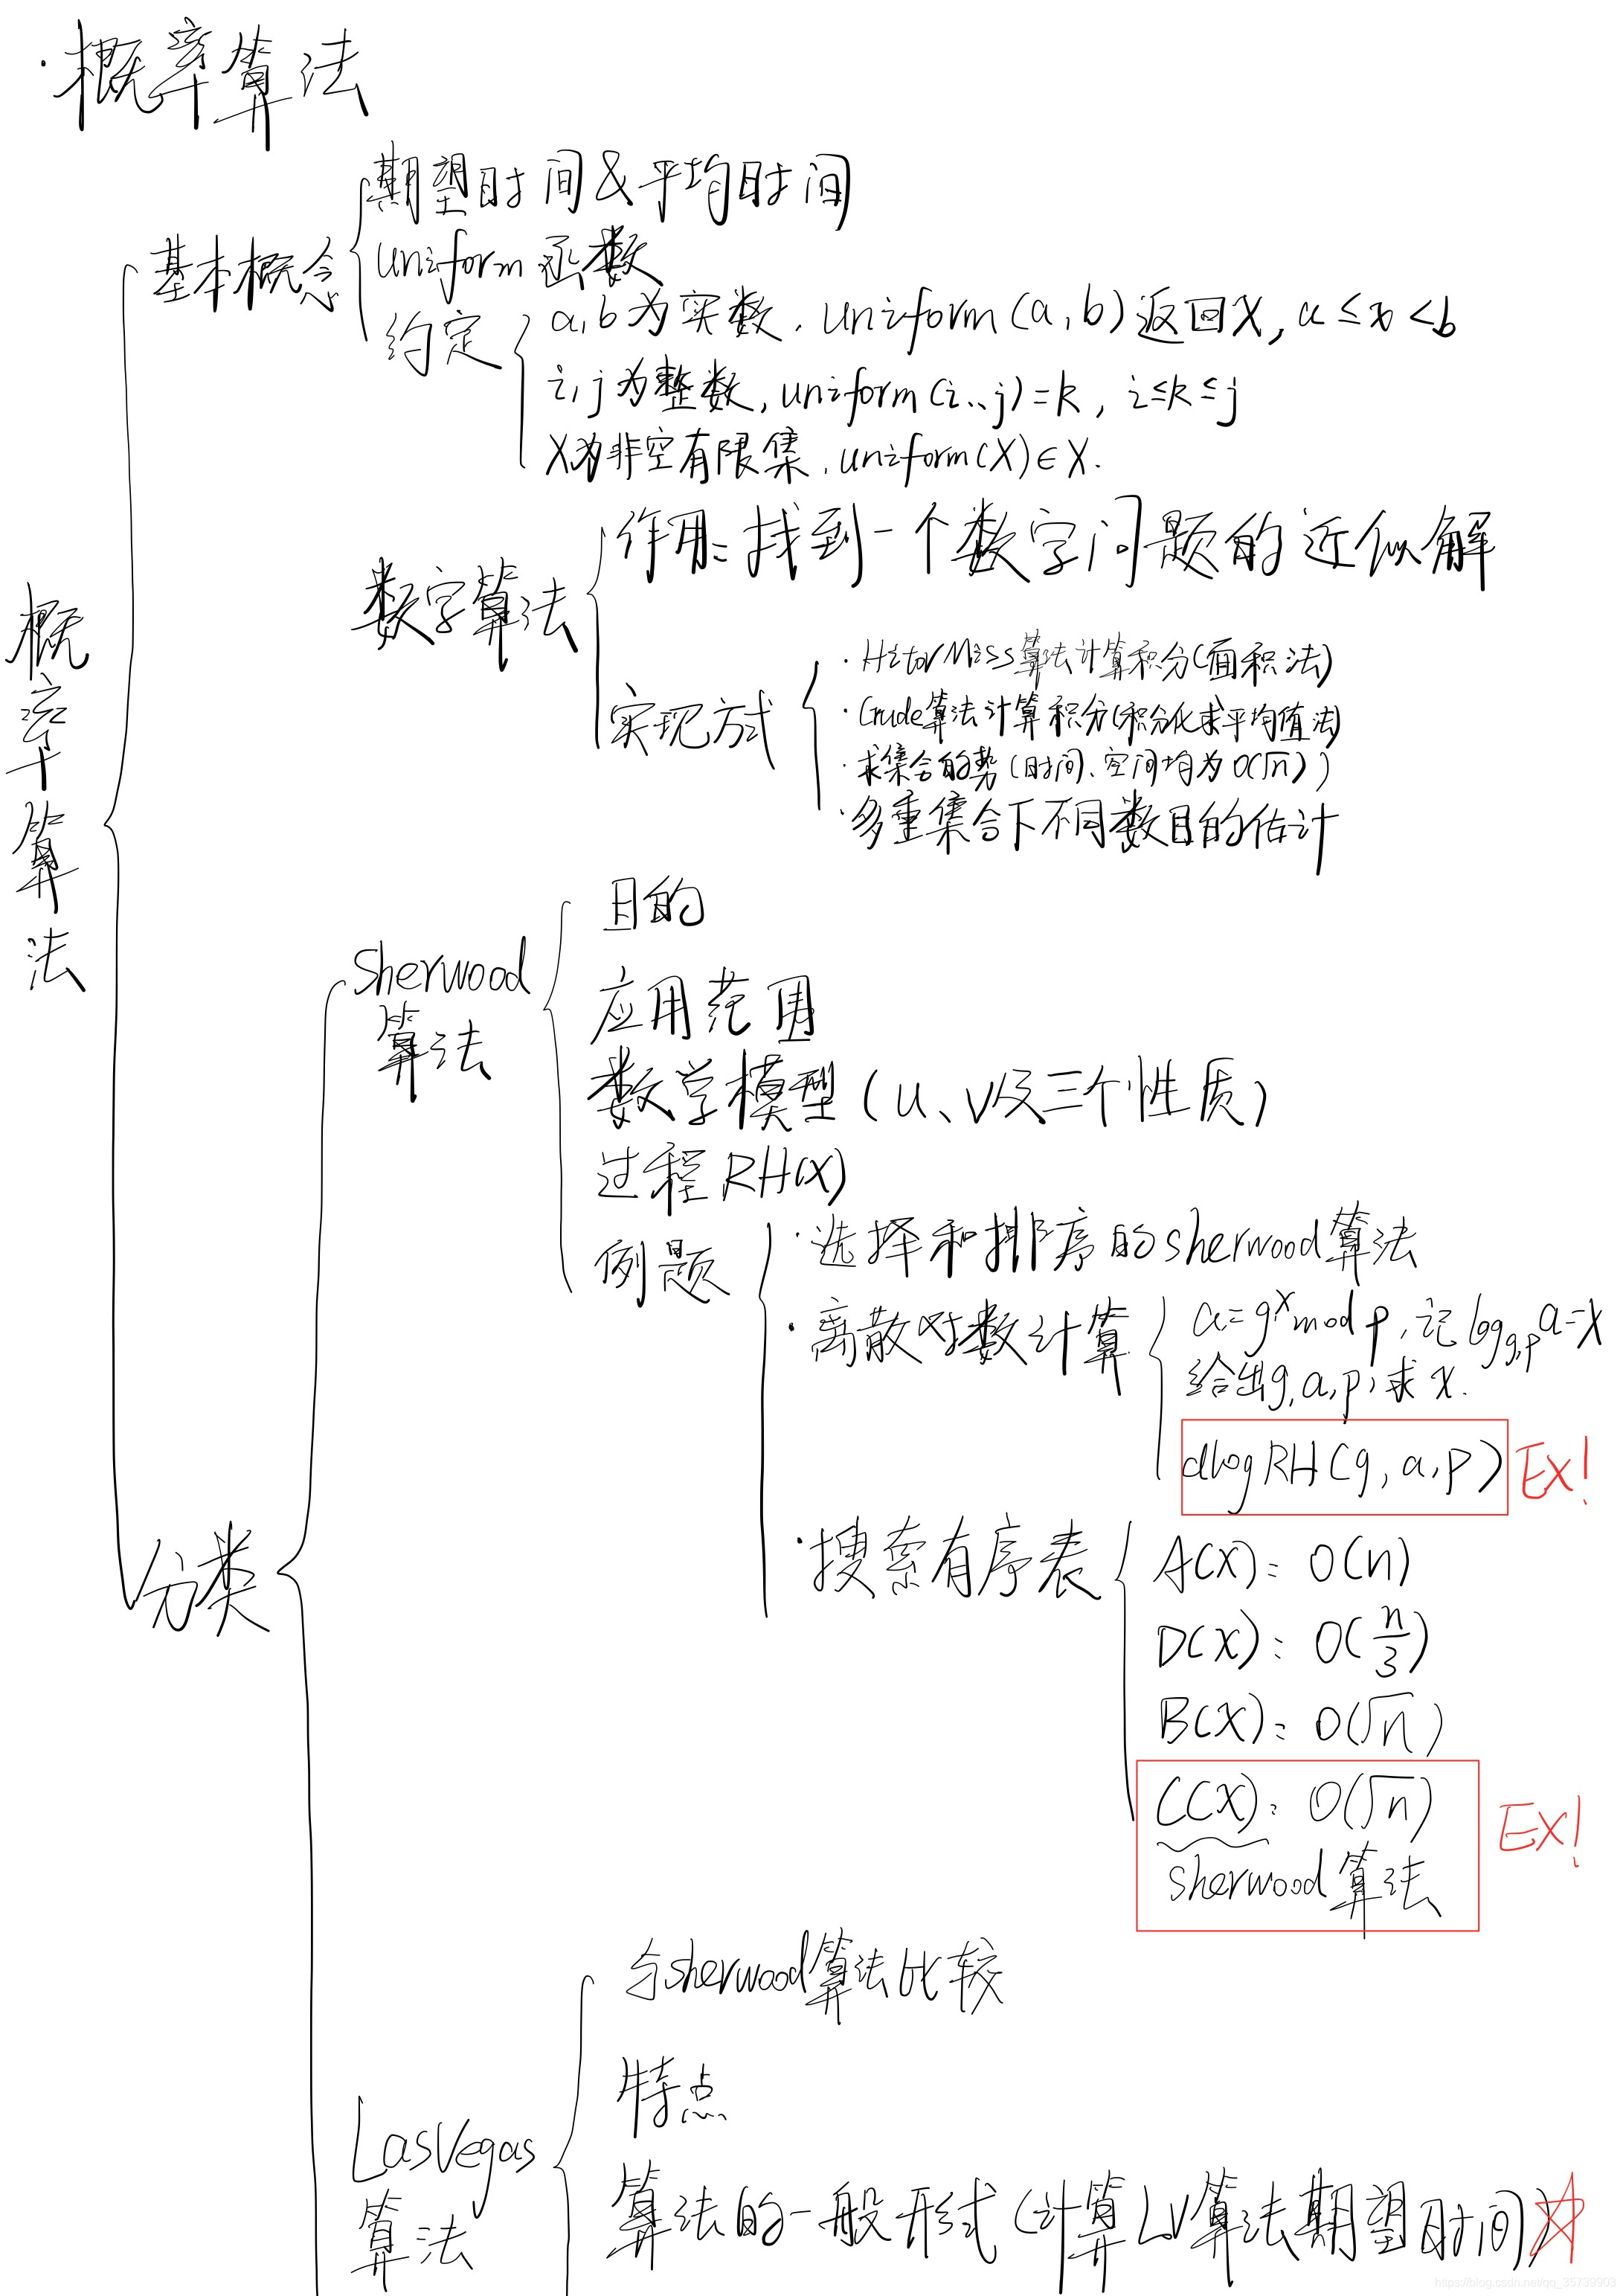 ·概率算法
概率算法
基本概念
期望时间&平均时间
uniform函数
约定
a,b为实数,uniform(a,b)返回X,a≤x<b
i,j为整数,uniform(i..j)=k,i≤k≤j
X为非空有限集,uniform(X)∈X.
分类
数字算法
作用:找到一个数字问题的近似解
实现方式
·HitorMiss算法计算积分(面积法)
·Crude算法计算积分(积分化求平均值法)
·求集合的势(时间、空间均为O(√n))
·多重集合下不同数目的估计
Sherwood
算法
目的
应用范围
数学模型(u、v及三个性质)
过程RH(X)
例题
·选择和排序的sherwood算法
·离散对数计算
a=g^x mod p,记log_{g,p}a=x
给出g,a,p,求x.
dlogRH(g,a,p) EX!
·搜索有序表
A(X):O(n)
D(X):O(n/3)
B(X):O(√n)
C(X):O(√n)
sherwood算法
EX!
LasVegas
算法
与sherwood算法比较
特点
算法的一般形式(计算LV算法期望时间)☆
https://blog.csdn.net/qq_35739903